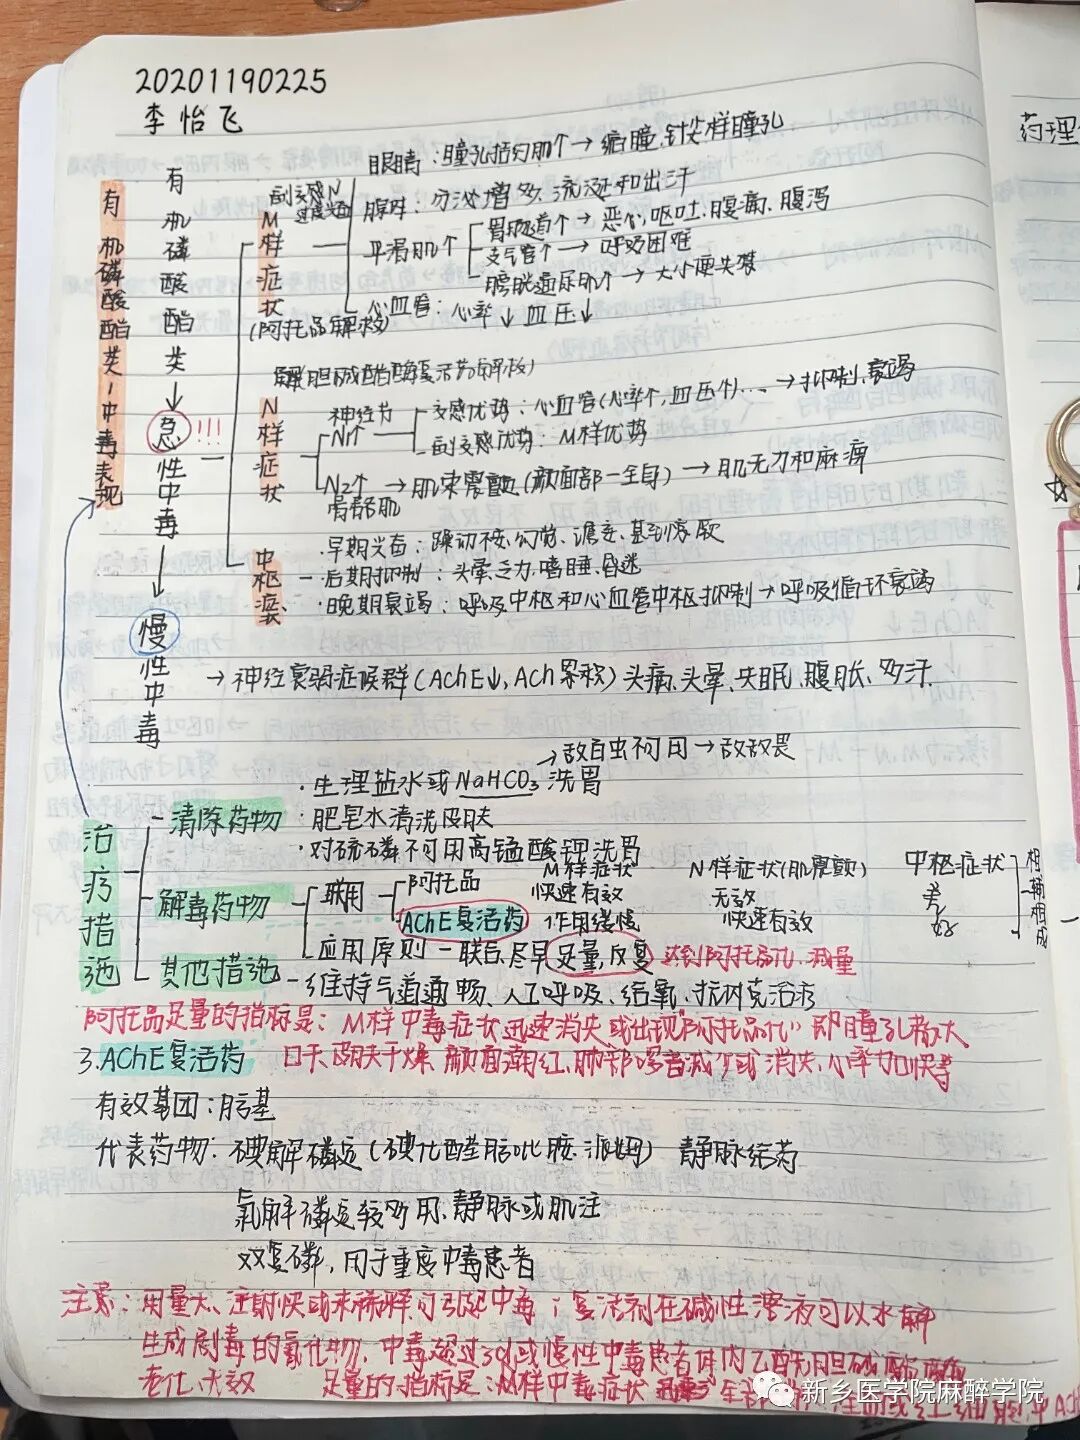 20201190225
李怡飞
药理
有机磷酸酯类中毒表现
有机磷酸酯类→急性中毒→慢性中毒
!!!
副交感N
M样症状
(阿托品解救)
眼睛:瞳孔括约肌↑→缩瞳.针尖样瞳孔
腺体:分泌增多.流涎和出汗
平滑肌↑
胃肠道↑→恶心.呕吐.腹痛.腹泻
支气管↑→呼吸困难
膀胱逼尿肌↑→大小便失禁
心血管:心率↓血压↓
胆碱酯酶复活药解救)
N样症状
神经节
N₁↑
交感优势:心血管(心率↑,血压↑)...→抑制.衰竭
副交感优势:M样优势
N₂↑→肌束震颤(颜面部—全身)→肌无力和麻痹
骨骼肌
中枢症
·早期兴奋:躁动不安.幻觉.谵妄.甚到惊厥
-后期抑制:头晕.乏力.嗜睡.昏迷
·晚期衰竭:呼吸中枢和心血管中枢抑制→呼吸循环衰竭
→神经衰弱症候群(AChE↓,ACh累积)头痛.头晕.失眠.腹胀.多汗.
→敌百虫不可用→敌敌畏
治疗措施
清除药物
·生理盐水或NaHCO₃洗胃
·肥皂水清洗皮肤
·对硫磷不可用高锰酸钾洗胃
M样症状 N样症状(肌震颤) 中枢症状
解毒药物
联用
阿托品 快速有效 无效 差
AChE复活药 作用缓慢 快速有效 好
相辅相成
应用原则—联合.尽早.足量,反复 达到阿托品化.减量
其他措施-维持气道通畅、人工呼吸、给氧、抗休克治疗
阿托品足量的指标是:M样中毒症状迅速消失或出现"阿托品化"即瞳孔散大
3.AChE复活药 口干、皮肤干燥、颜面潮红、肺部啰音减少或消失、心率加快等
有效基团:肟基
代表药物:碘解磷定(碘化醛肟吡胺.派姆) 静脉给药
氯解磷定较多用.静脉或肌注
双复磷,用于重度中毒患者
注意:用量大、注射快或未稀释可引起中毒;复活剂在碱性溶液可以水解
生成剧毒的氰化物.中毒超过3d或慢性中毒患者体内乙酰胆碱酯酶
老化.无效 足量的指标是:M样中毒症状
新乡医学院麻醉学院